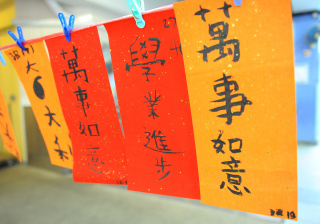 萬事如意
學業進步
萬事如意
大
大